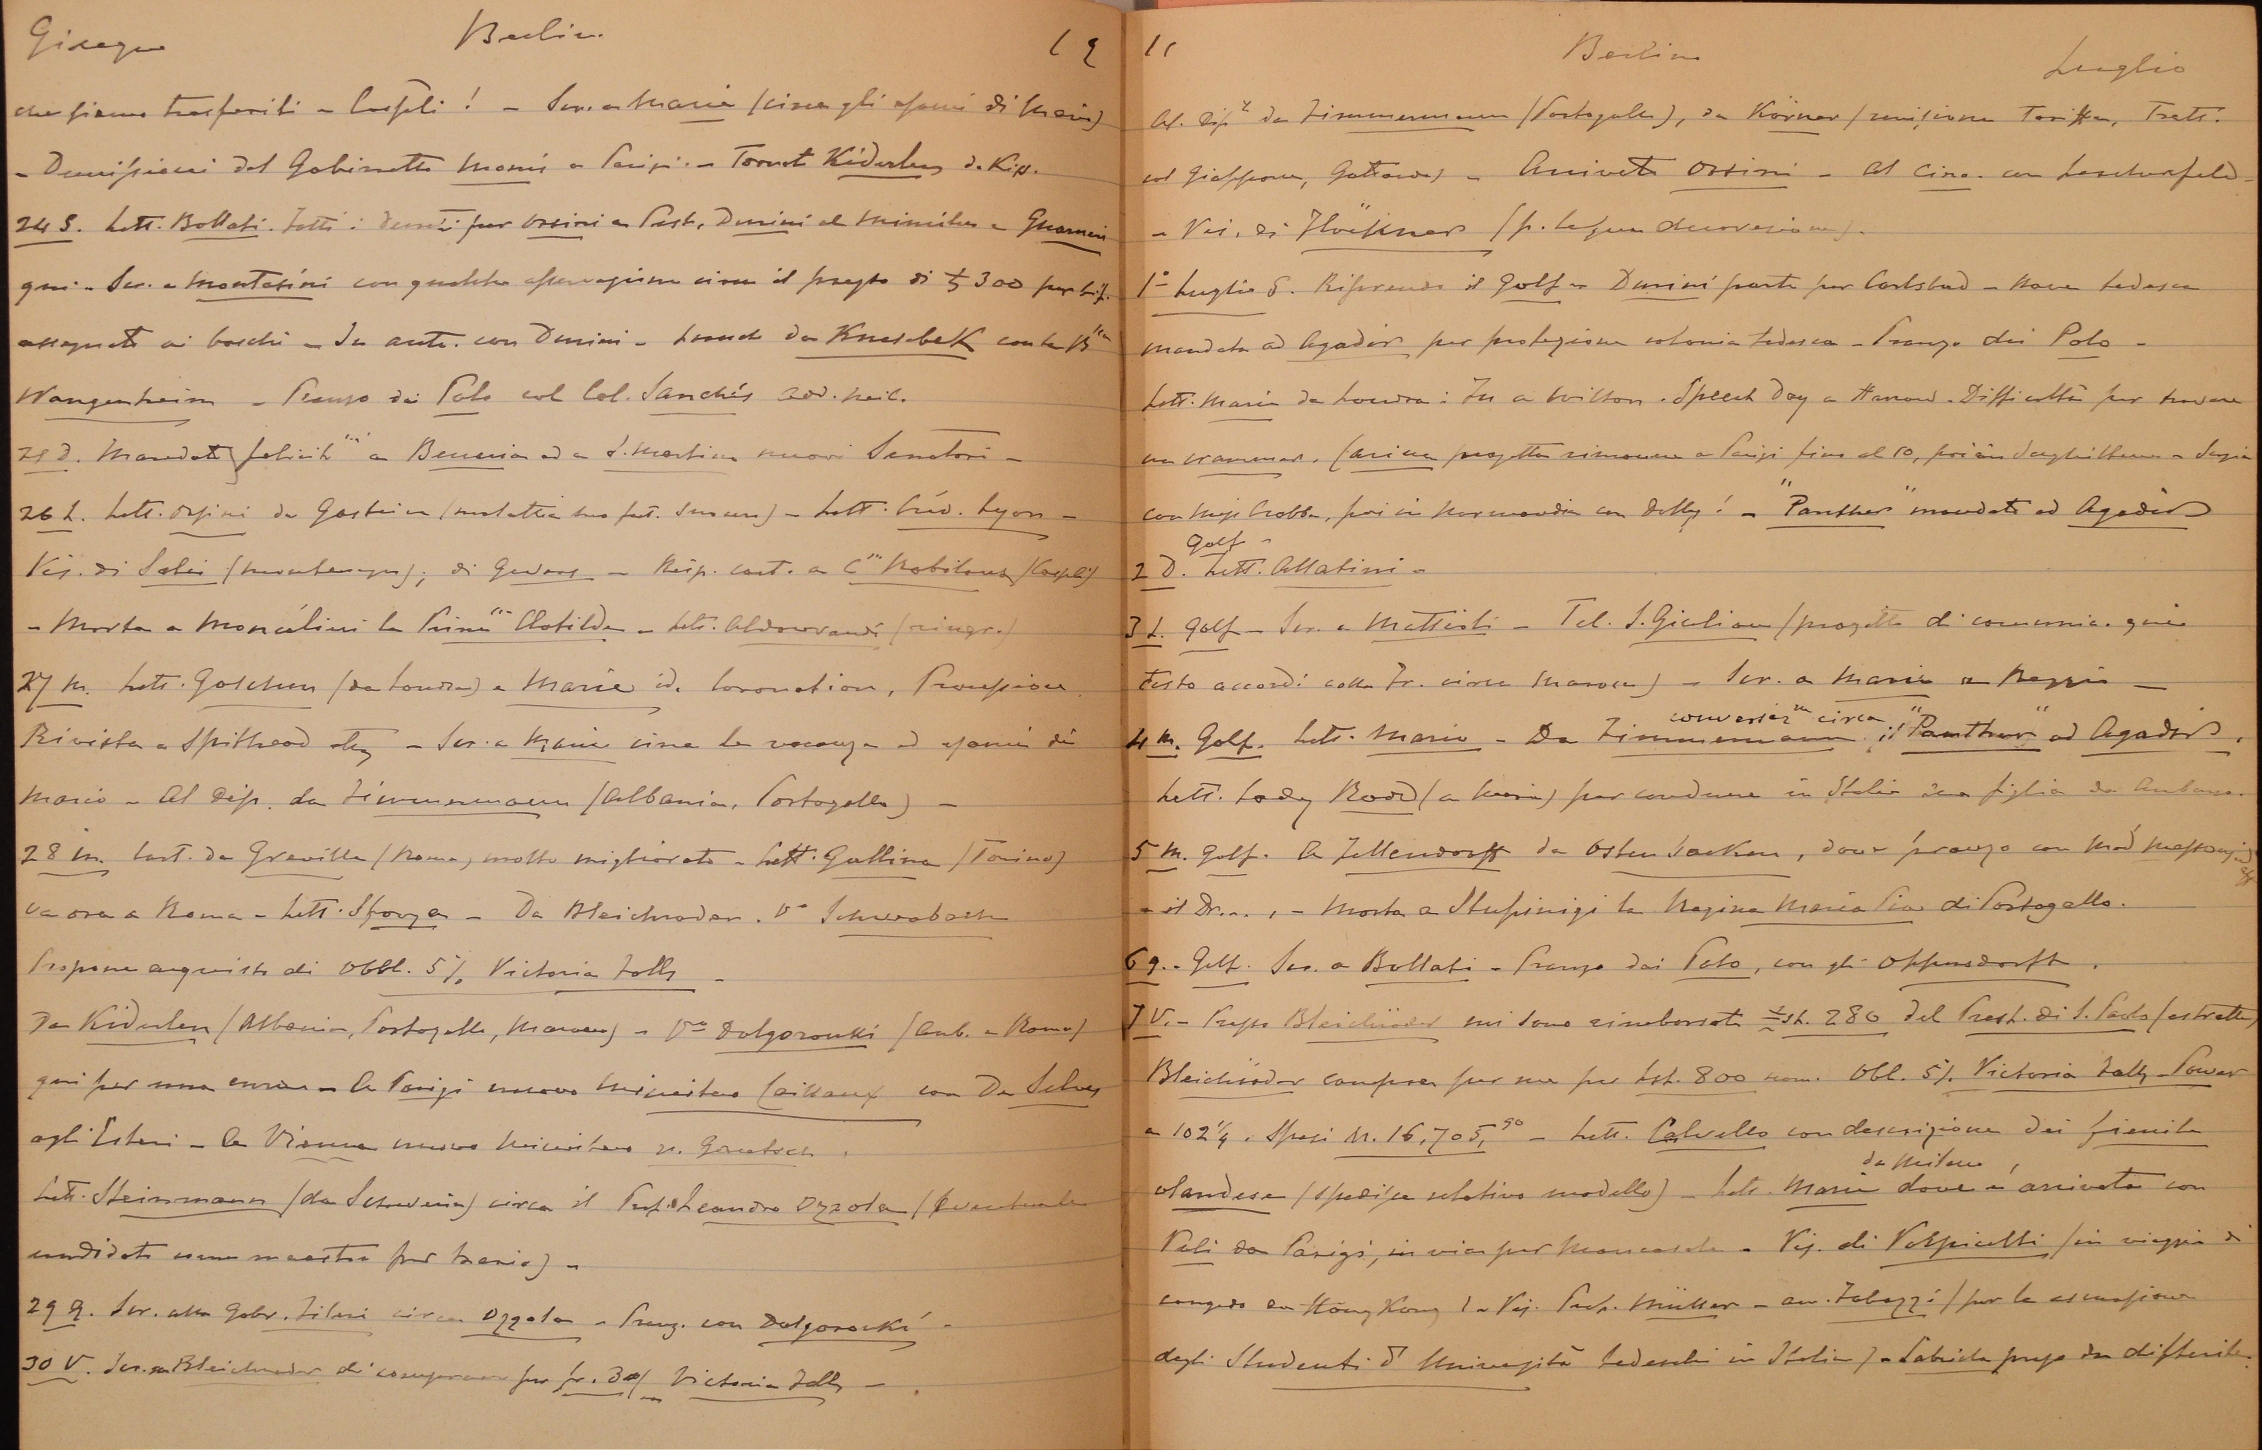 Giugno Berlin 19
trasferiti a ! - Scr. a Maria (circa gli esami di Mario)
- Dimissioni del Gabinetto Monis a Parigi. - Tornato Kiderlen da Kiss.
24 S. Lett. Bollati. Fatti i decreti per Orsini a Pest, Durini al Ministero e Guarneri
qui. - Scr. a Montesini con qualche osservazione circa il prezzo di 300 per
assegnato ai boschi - In auto. con Durini - Lunch da Knesebek con la B
Wangenheim - Pranzo da Polo col Col. Sanchés add. mil.
25 D. Mandato felicit a Beneria ed a S. Martino nuovi Senatori -
26 L. Lett. Orsini da Gastein (malattia suo) - Lett. Créd. Lyon -
Vis. di Salei (Montenegro); di Gevers - Risp. cart. a C Robilant
- Morta a Moncalieri la Princ Clotilde - Lett. Aldovrandi (ringr.)
27 M. Lett. Goschen (da Londra) e Maria id. Coronation, Processione,
Rivista a Spithead etc - Scr. a Maria circa le vacanze ed esami di
Mario - Al Dip. da Zimmermann (Albania, Portogallo) -
28 M. Cart. da Greville (Roma) molto migliorato - Lett. Gallina (Torino)
va ora a Roma - Lett. Sforza - Da Bleichroder. V Schwabach
Propone acquisto di Obbl. 5% Victoria Falls -
Da Kiderlen (Albania, Portogallo, Marocco) - V Dolgorouki (Amb. a Roma)
qui per una - A Parigi nuovo Ministero Caillaux con De Selves
agli Esteri - A Vienna nuovo Ministero v. Gautsch.
Lett. Steinmann (da Schwerin) circa il Prof. Leandro Ozzola (eventuale
candidato come maestro per Mario) -
29 G. Scr. alla Gabr. circa Ozzola - Pranz. con Dolgorouki -
30 V. Scr. a Bleichroder di comperare per Victoria Falls -
11 Berlin Luglio
Al Dip da Zimmermann (Portogallo), da Körner (revisione Tariffa, Tratt.
col Giappone,) - Arrivato Orsini - Al Cine. con
- Vis. di (p. decorazione) -
1° Luglio S. Riprendo il Golf - Durini parte per Carlsbad - Nave tedesca
mandata ad Agadir per protezione colonia tedesca - Pranzo dai Polo -
Lett. Maria da Londra: Fu a Wilton. Speech Day a Harrow. Difficoltà per trovare
un crammer. progetta rimanere a Parigi fino al 10, poi in Inghilterra
con Miss, poi in Normandia con Dolly! - "Panther" mandato ad Agadir
2 D. Golf - Lett. Allatini -
3 L. Golf - Scr. a Mattioli - Tel. S. Giuliano (progetto di comunic. qui
testo accordi colla Fr. circa Marocco) - Scr. a Maria a Reggio -
4 M. Golf. Lett. Maria - Da Zimmermann conversaz circa il "Panther" ad Agadir.
Lett. Lady Rodd (a Maria) per condurre in Italia sua figlia da
5 M. Golf. A Zellendorff da Osten Sacken, dove pranzo con Mad
e il Dr..., - Morta a Stupinigi la Regina Maria Pia di Portogallo.
6 G. - Golf. Scr. a Bollati - Pranzo dai Polo, con gli Oppersdorff.
7 V. - Presso Bleichröder mi sono rimborsate Lst. 280 del Prest. di S. Paolo (estratte)
Bleichröder compra per me per Lst. 800 nom. Obl. 5% Victoria Falls Power
a 102 1/4. Spesi M. 16,705,90 - Lett. Calvello con descrizione dei fienile
olandese (spedisce relativo modello) - Lett. Maria da Milano dove è arrivata con
da Parigi, in via per - Vis. di Volpicelli (in viaggio di
congedo da Hong Kong) - Vis. Prof. Müller - av. (per la escursione
degli Studenti d' Università tedeschi in Italia) -